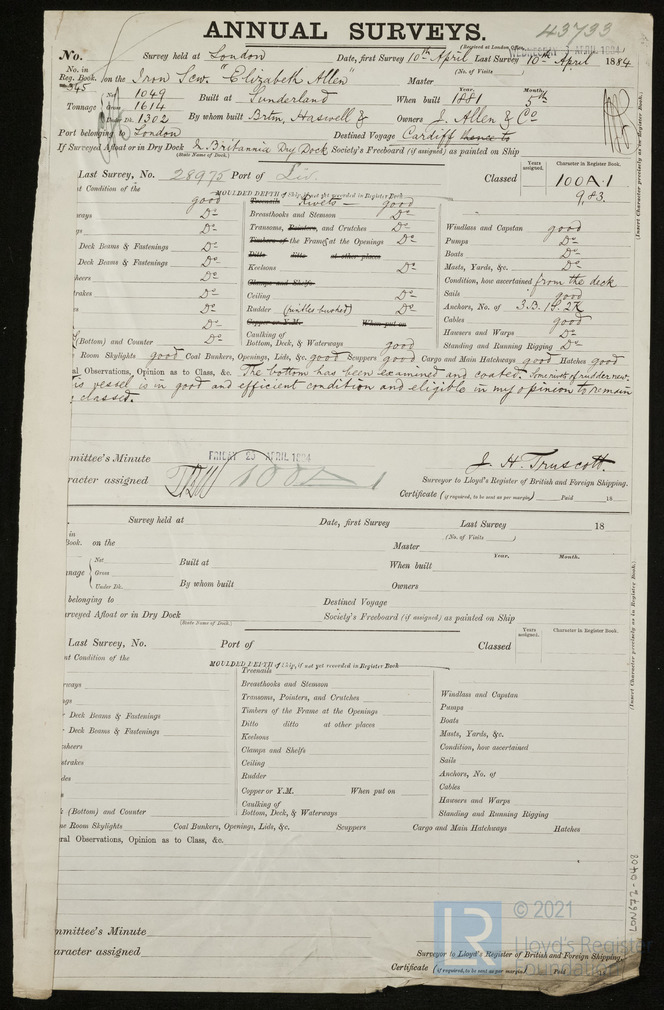 ANNUAL SURVEYS.
43733
(Received at London Office
WEDNESDAY APRIL 1884
No. Survey held at London Date, first Survey 10th April Last Survey 10th April 1884
No. in Reg. Book. on the Iron Scw. "Elizabeth Allen" Master (No. of Visits )
345
Tonnage Net 1049 Built at Sunderland When built Year. 1881 Month. 5th
Gross 1614
Under Dk. 1302 By whom built Brtm, Haswell & Owners J. Allen & Co
Port belonging to London Destined Voyage Cardiff thence to
If Surveyed Afloat or in Dry Dock Britannia Dry Dock Society's Freeboard (if assigned) as painted on Ship
(State Name of Dock.)
Years assigned. Character in Register Book.
Last Survey, No. 28975 Port of Liv. Classed 100A.1
9,83.
(Insert Character precisely as in Register Book.)
nt Condition of the MOULDED DEPTH of Ship, if not yet recorded in Register Book
good Treenails Rivets good
ways Do Breasthooks and Stemson Do
gs Do Transoms, Pointers, and Crutches Do Windlass and Capstan good
Deck Beams & Fastenings Do Timbers of the Frame at the Openings Do Pumps Do
Ditto ditto at other places Boats Do
Deck Beams & Fastenings Do Keelsons Do Masts, Yards, &c. Do
heers Do Clamps and Shelfs Condition, how ascertained from the deck
trakes Do Ceiling Do Sails good
Do Rudder (pintles bushed) Do Anchors, No. of 3.B. 1S. 2K
Do Copper or Y.M. When put on Cables good
(Bottom) and Counter Do Caulking of Bottom, Deck, & Waterways good Hawsers and Warps Do
Standing and Running Rigging Do
Room Skylights good Coal Bunkers, Openings, Lids, &c. good Scuppers good Cargo and Main Hatchways good Hatches good
al Observations, Opinion as to Class, &c. The bottom has been examined and coated. Some rivets of rudder new.
is vessel is in good and efficient condition and eligible in my opinion to remain
classed.
mmittee's Minute FRIDAY 25 APRIL 1884
racter assigned 100A1
J. H. Truscott.
Surveyor to Lloyd's Register of British and Foreign Shipping.
Certificate (if required, to be sent as per margin) Paid 18
Survey held at Date, first Survey Last Survey 18
in Book. on the Master (No. of Visits )
nnage Net Built at When built Year. Month.
Gross
Under Dk. By whom built Owners
belonging to Destined Voyage
urveyed Afloat or in Dry Dock Society's Freeboard (if assigned) as painted on Ship
(State Name of Dock.)
Years assigned. Character in Register Book.
Last Survey, No. Port of Classed
(Insert Character precisely as in Register Book.)
nt Condition of the MOULDED DEPTH of Ship, if not yet recorded in Register Book
Treenails
rways Breasthooks and Stemson
Transoms, Pointers, and Crutches Windlass and Capstan
Deck Beams & Fastenings Timbers of the Frame at the Openings Pumps
Ditto ditto at other places Boats
Deck Beams & Fastenings Keelsons Masts, Yards, &c.
sheers Clamps and Shelfs Condition, how ascertained
strakes Ceiling Sails
des Rudder Anchors, No. of
Copper or Y.M. When put on Cables
(Bottom) and Counter Caulking of Bottom, Deck, & Waterways Hawsers and Warps
Standing and Running Rigging
ne Room Skylights Coal Bunkers, Openings, Lids, &c. Scuppers Cargo and Main Hatchways Hatches
ral Observations, Opinion as to Class, &c.
mmittee's Minute
aracter assigned
Surveyor to Lloyd's Register of British and Foreign Shipping.
Certificate (if required, to be sent as per margin) Paid
LR © 2021
Lloyd's Register
Foundation
LON672-0402